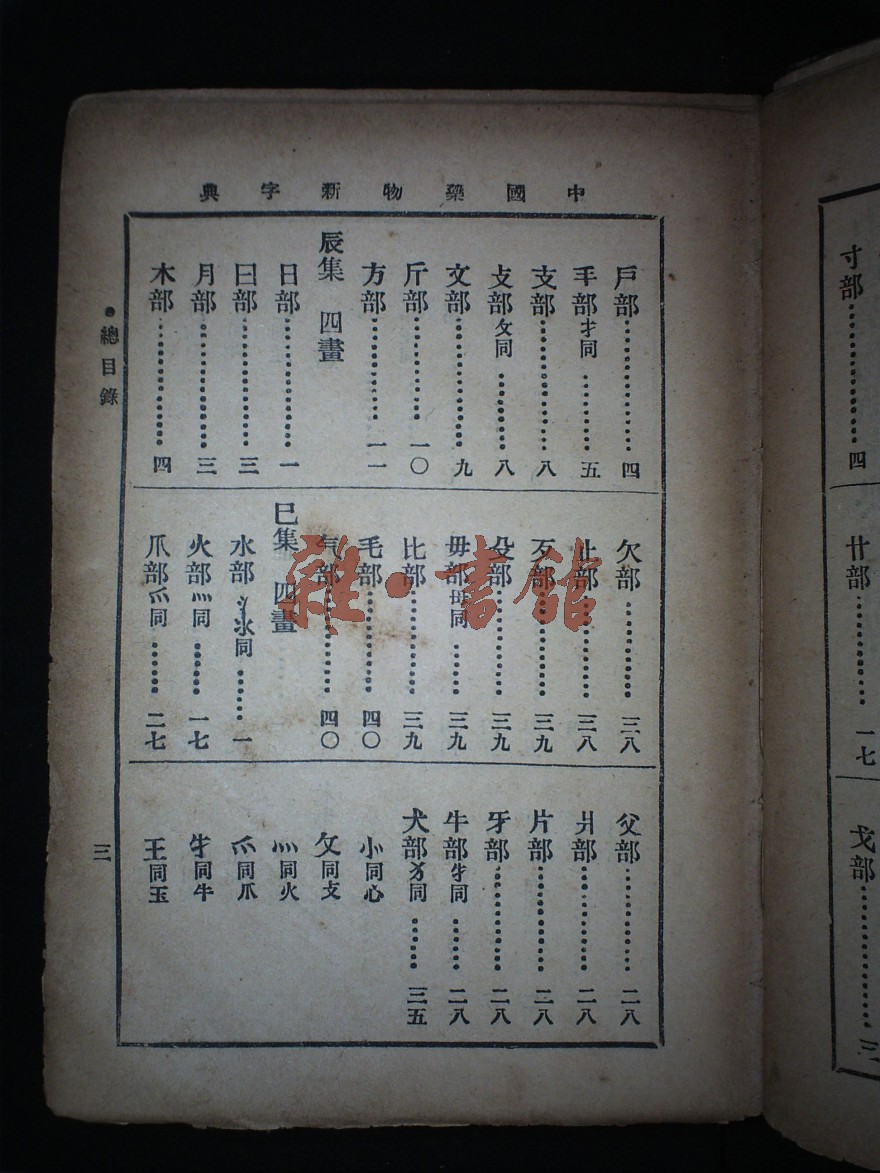 中國藥物新字典
戶部……………四
手部才同………五
支部……………八
攴部攵同………八
文部……………九
斤部……………一〇
方部……………一一
辰集 四畫
日部……………一
曰部……………三
月部……………三
木部……………四
欠部……………三八
止部……………三八
歹部……………三九
殳部……………三九
毋部母同………三九
比部……………三九
毛部……………四〇
气部……………四〇
巳集 四畫
水部氵氺同……一
火部灬同………一七
爪部爫同………二七
父部……………二八
爿部……………二八
片部……………二八
牙部……………二八
牛部牜同………二八
犬部犭同………三五
㣺同心
攵同攴
灬同火
爫同爪
牜同牛
王同玉
●總目錄
三
雜·書館
寸部……………四
廾部……………一七
戈部……………三